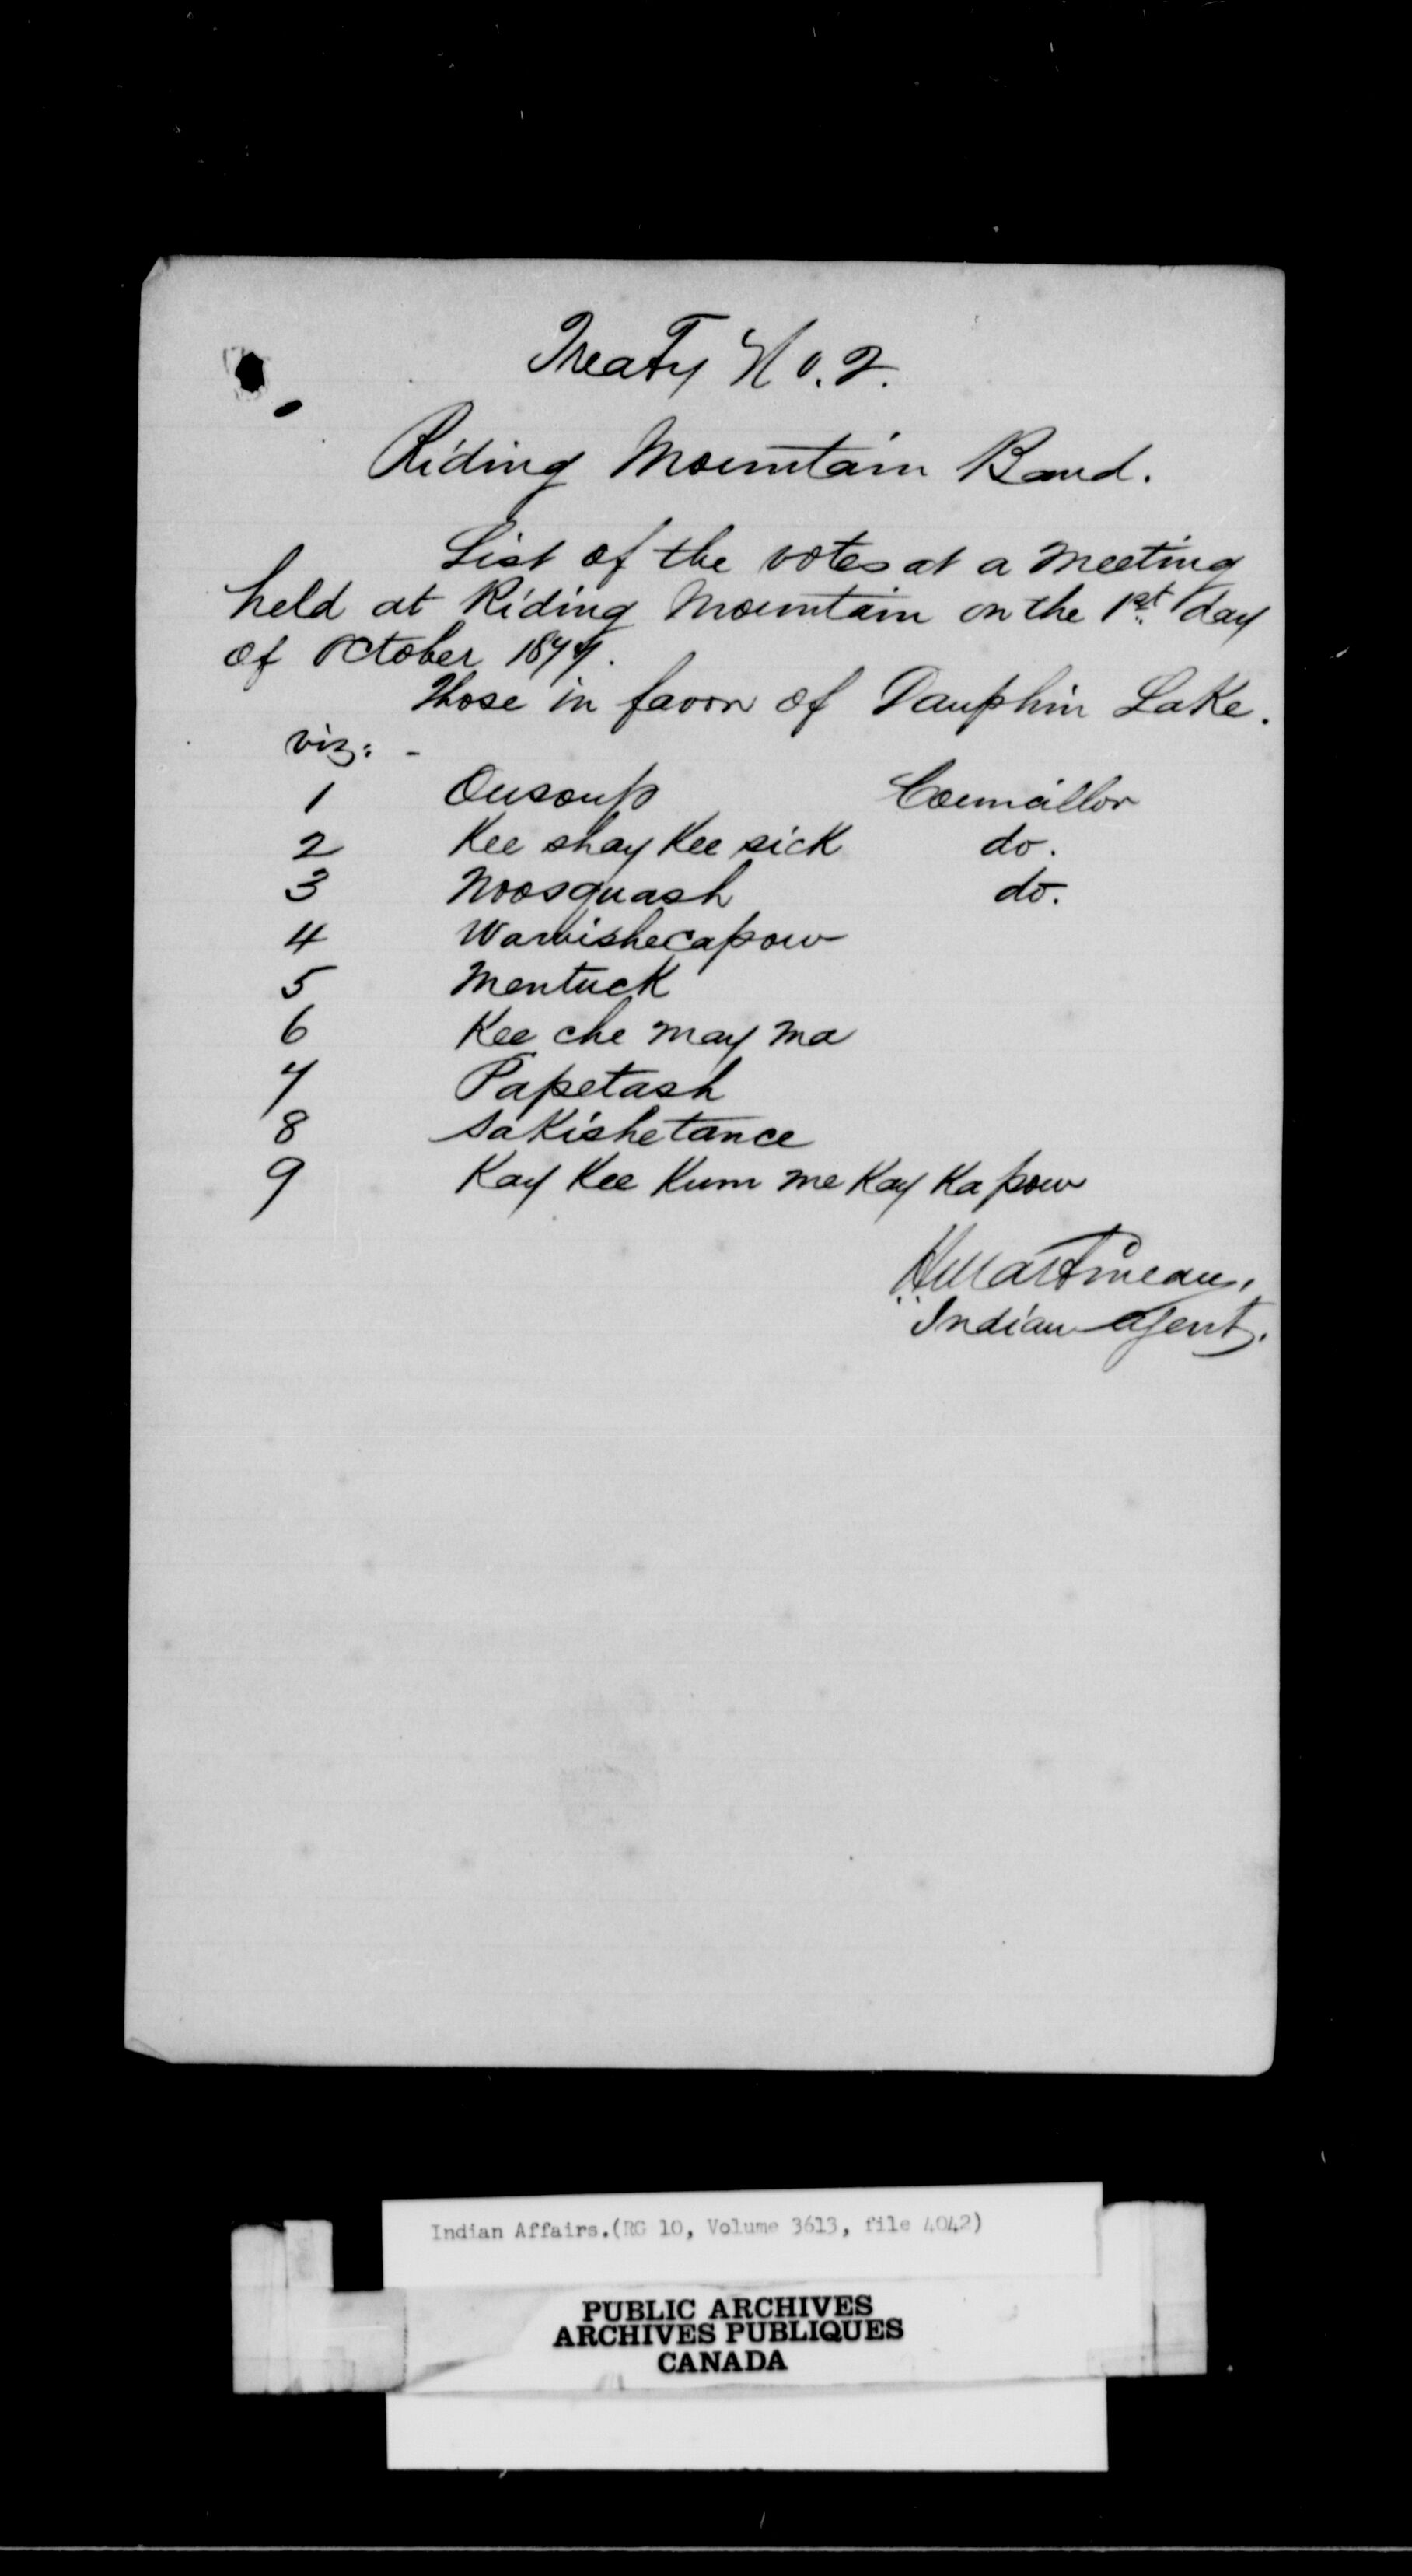 Treaty No. 2.
Riding Mountain Band.
List of the votes at a meeting
held at Riding Mountain on the 1st day
of October 1877.
Those in favor of Dauphin Lake.
viz: -
1 Ousoup Councillor
2 Kee shay Kee sick do.
3 Noosquash do.
4 Wawbishecapow
5 Mentuck
6 Kee che may ma
7 Papetash
8 Sakishetance
9 Kay Kee Kum me Kay Ka pow
H Martineau,
Indian Agent.
Indian Affairs.(RG 10, Volume 3613, file 4042)
PUBLIC ARCHIVES
ARCHIVES PUBLIQUES
CANADA